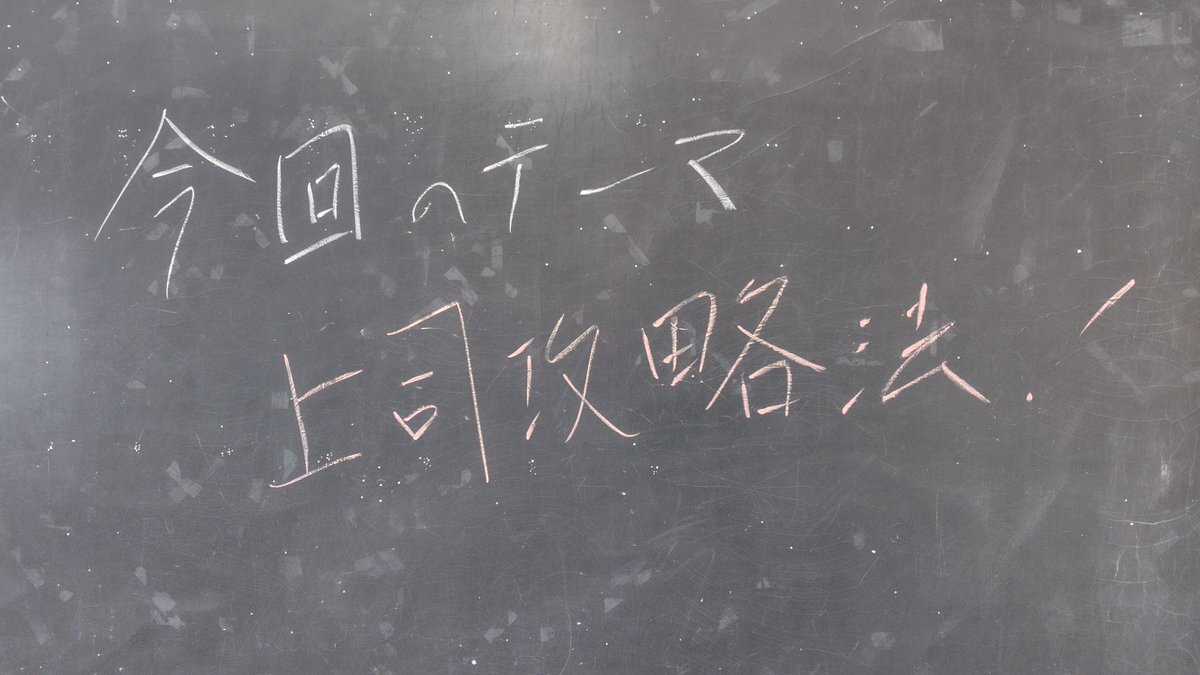 今回のテーマ
上司攻略法!